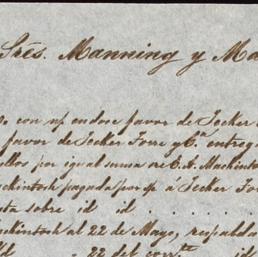 Srés. Manning y Ma
o. con mi endoso favor de Jecker
favor de Jecker Torre y Cª. entreg
ellos por igual suma de E. A. Mackintos
ackintosh pagada por íd á Jecker Tor
sta sobre id id . . . . . .
ackintosh al 22 de Mayo, respaldo
id " 22 del corrte. " id